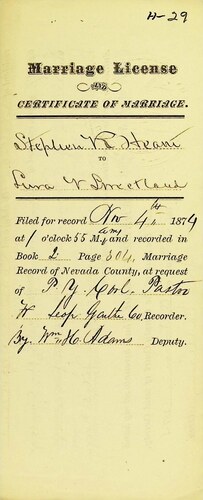 H-29
Marriage License
AND
CERTIFICATE OF MARRIAGE.
Stephen
TO
Filed for record Nov 4th 1874
at 1 o'clock 55 M. A.M. and recorded in
Book 2 Page 304, Marriage
Record of Nevada County, at request
of P. Y. Cool, Pastor
Co. Recorder.
By Wm. H. Adams Deputy.